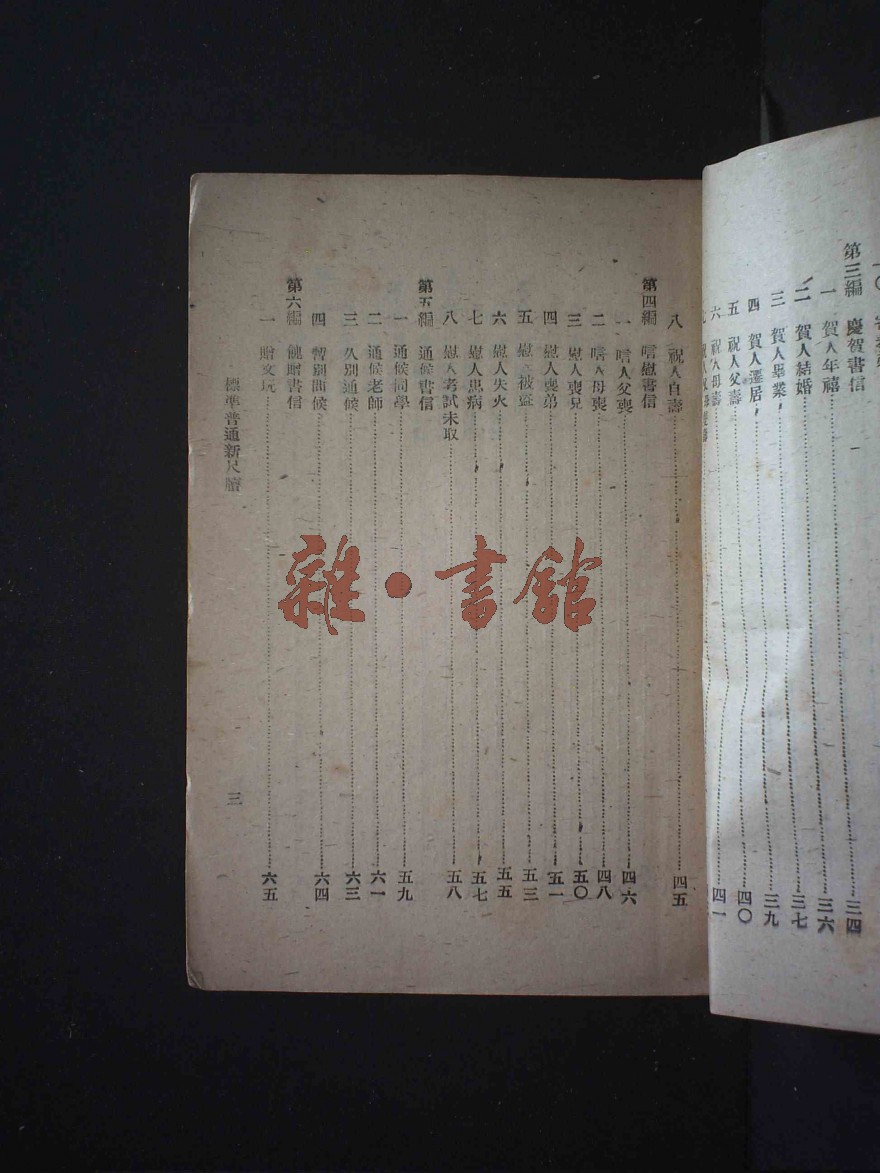 第三編　慶賀書信
一　賀人年禧……三四
二　賀人結婚……三六
三　賀人畢業……三七
四　賀人遷居……三九
五　祝人父壽……四〇
六　祝人母壽……四一
八　祝人自壽……四五
第四編　唁慰書信
一　唁人父喪……四六
二　唁人母喪……四八
三　慰人喪兄……五〇
四　慰人喪弟……五一
五　慰人被盜……五三
六　慰人失火……五五
七　慰人患病……五七
八　慰人考試未取……五八
第五編　通候書信
一　通候同學……五九
二　通候老師……六一
三　久別通候……六三
四　暫別問候……六四
第六編　餽贈書信
一　贈文玩……六五
標準普通新尺牘　三
雜·書館